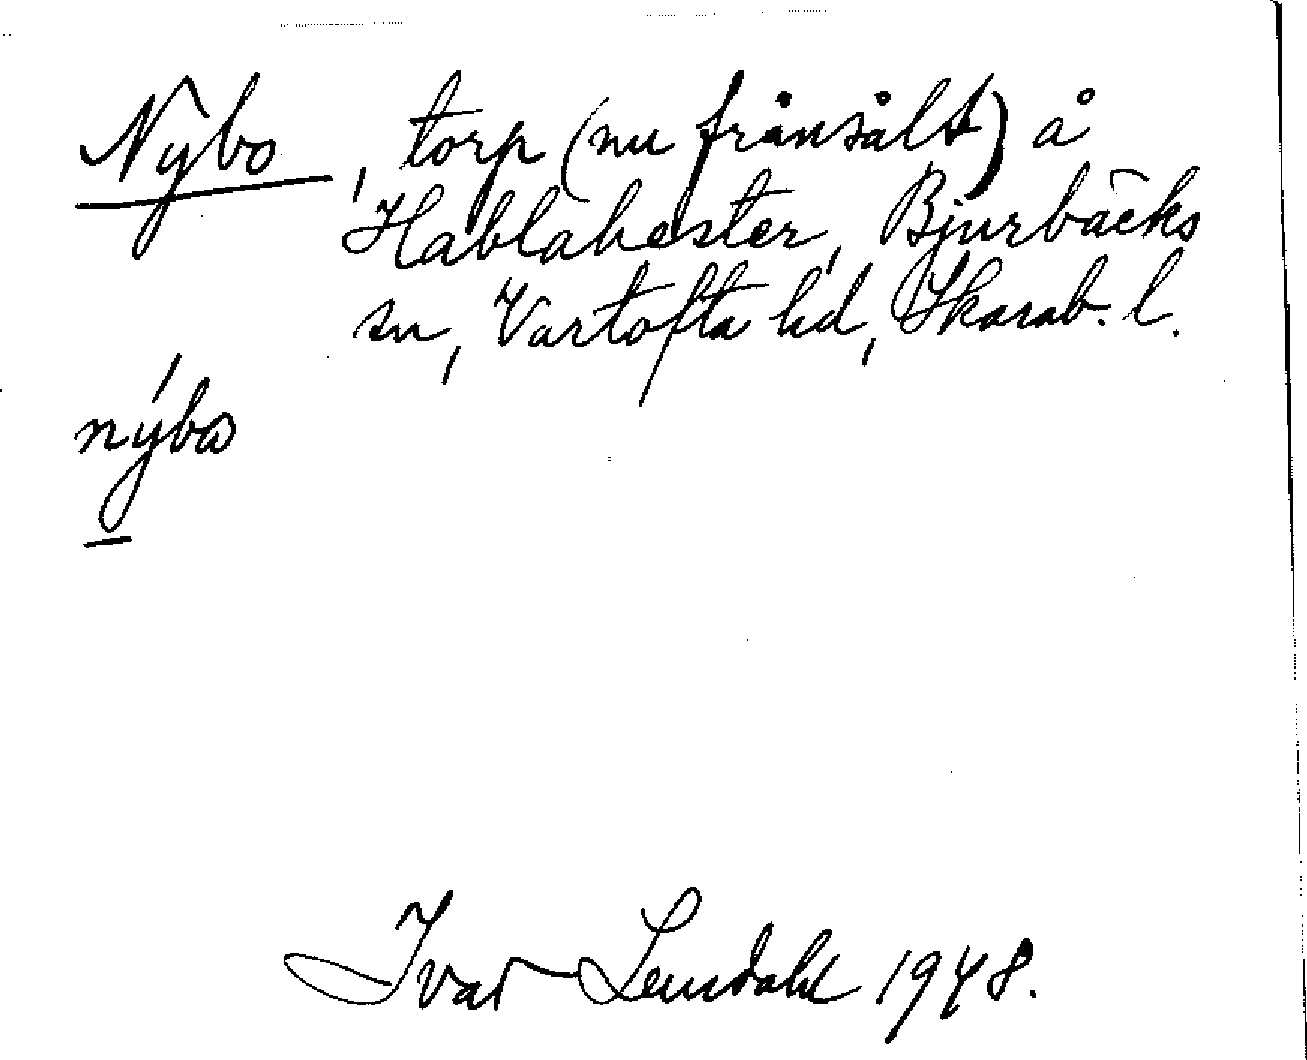 Nybo, torp (nu frånsålt) å
Habblahester, Bjurbäcks
sn, Vartofta hd, Skarab. l.
nýbo
Ivar Lundahl 1948.